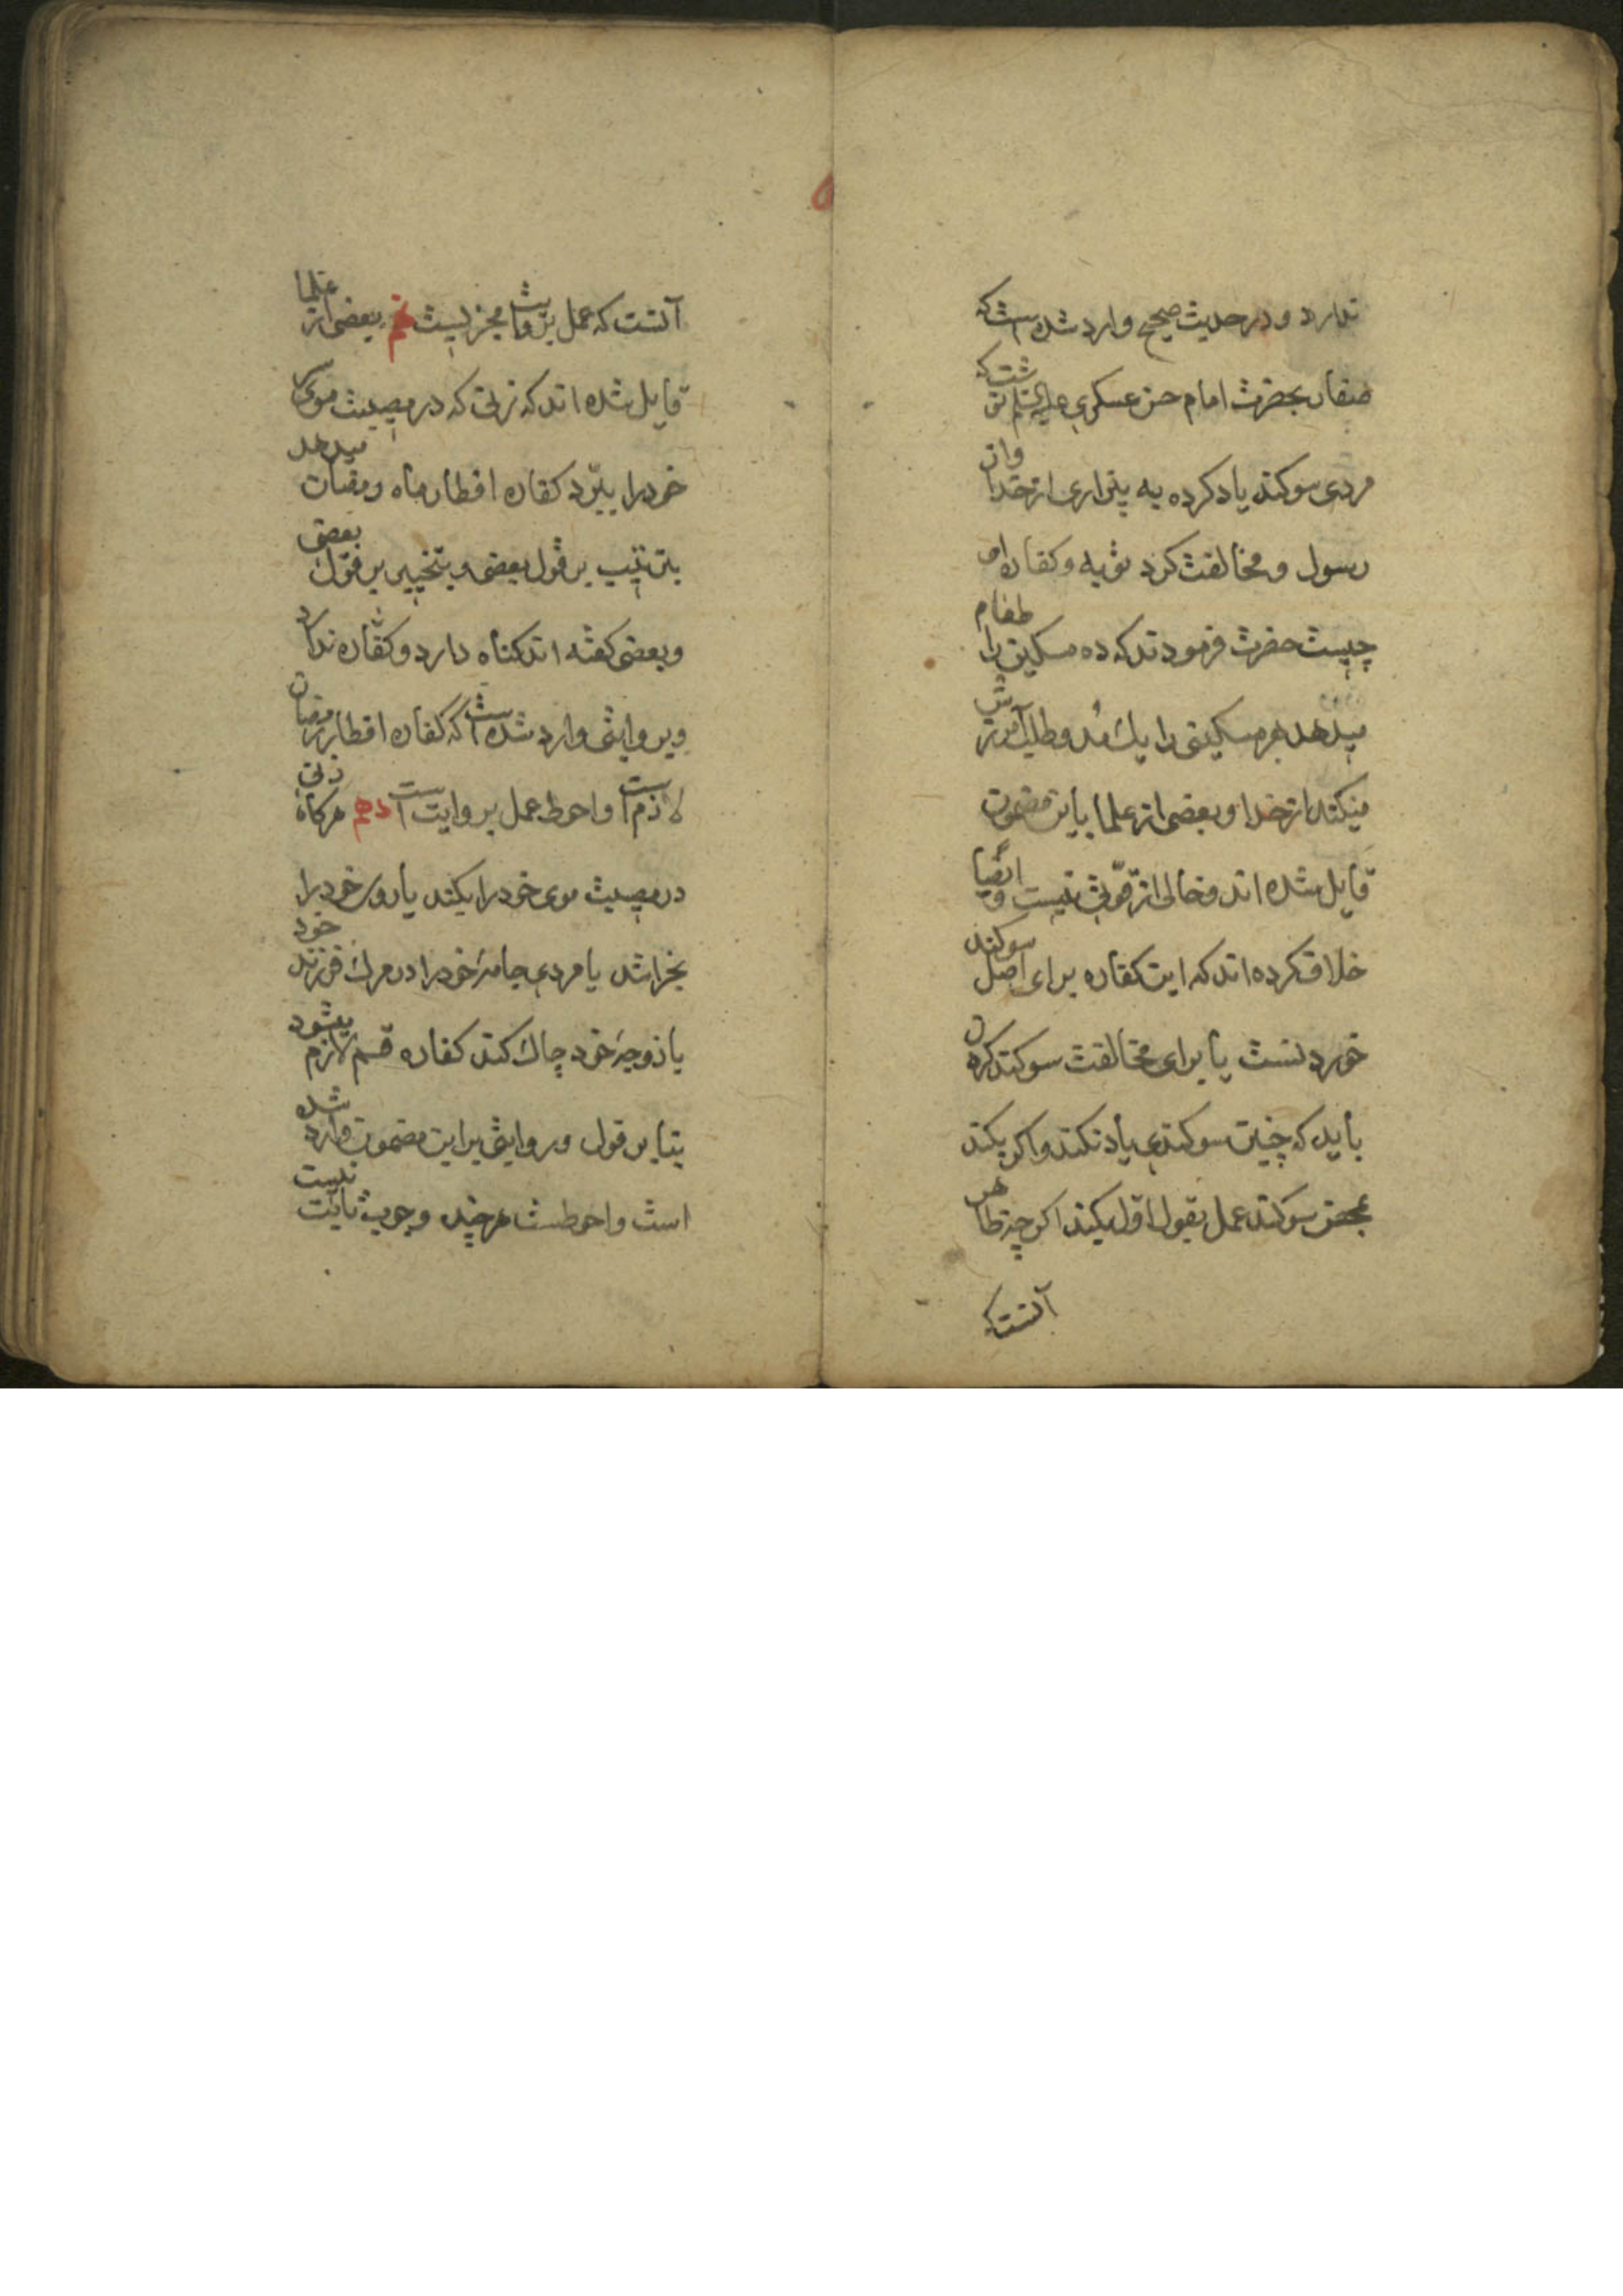 ندارد و در حدیث صحیح وارد شده است که
صفار بحضرت امام حسن عسکری علیه السلام نوشت که
مردی سوکند یاد کرده به بیزاری از خدا و از
رسول و مخالفت کرد توبه و کفاره او
چیست حضرت فرمودند که ده مسکین را طعام
میدهد هر مسکینی را یک مد و طلب آمرزش
میکند از خدا و بعضی از علما باین مضمون
قایل شده اند و خالی از قوتی نیست و ایضا
خلاف کرده اند که این کفاره برای اصل سوکند
خوردنست یا برای مخالفت سوکند کردن
باید که چنین سوکندی یاد نکند و اکر بکند
بمحض سوکند عمل بقول اول بکند اکر چه ظاهر
آنست که
آنست که عمل بروایت مجزیست نهم بعضی از علما
قایل شده اند که زنی که در مصیبت موی سر
خود را ببرد کفاره افطار ماه رمضان میدهد
بترتیب بر قول بعضی و بتخییر بر قول بعضی
و بعضی کفته اند کناه دارد و کفاره ندارد
و بروایتی وارد شده است که کفاره افطار رمضان
لازم است و احوط عمل بروایت است دهم هرکاه زنی
در مصیبت موی خود را بکند یا روی خود را
بخراشد یا مردی جامهٔ خود را در مرک فرزند خود
یا زوجهٔ خود چاک کند کفاره قسم لازم میشود
بنا بر قول و روایتی بر این مضمون وارد شده
است و احوطست هرچند وجوب ثابت نیست